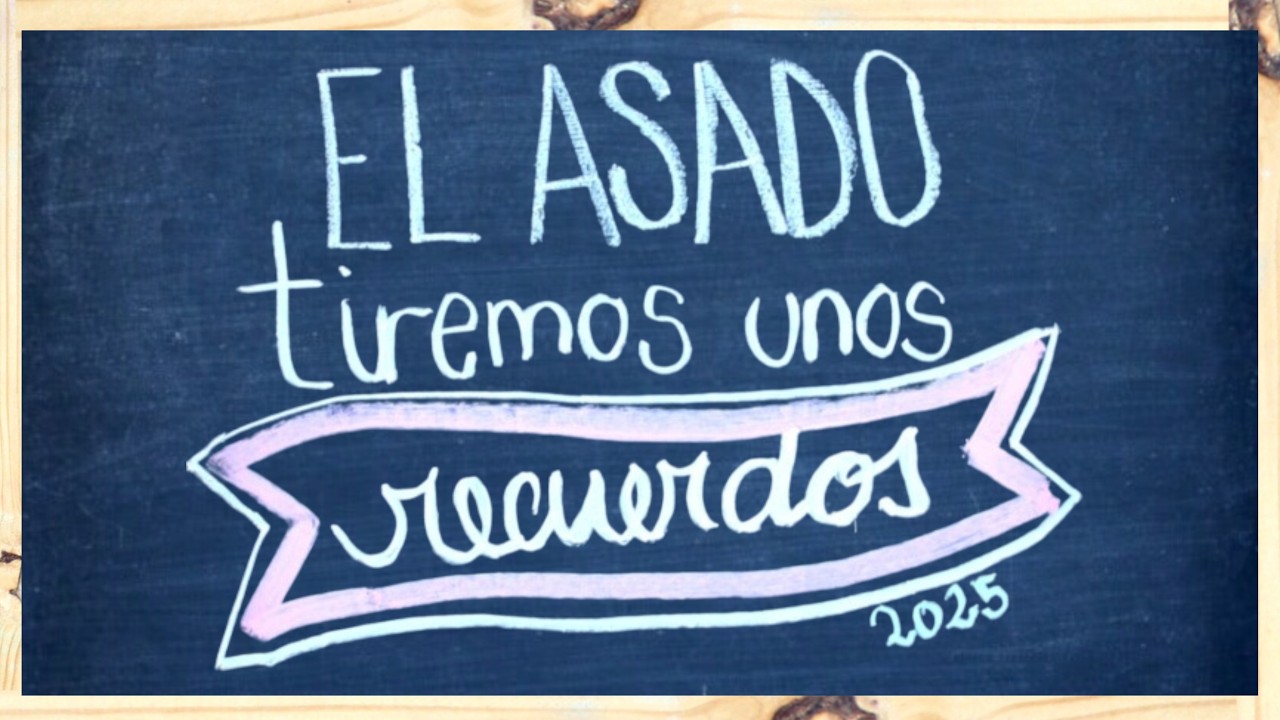 EL ASADO
tiremos unos
recuerdos
2025